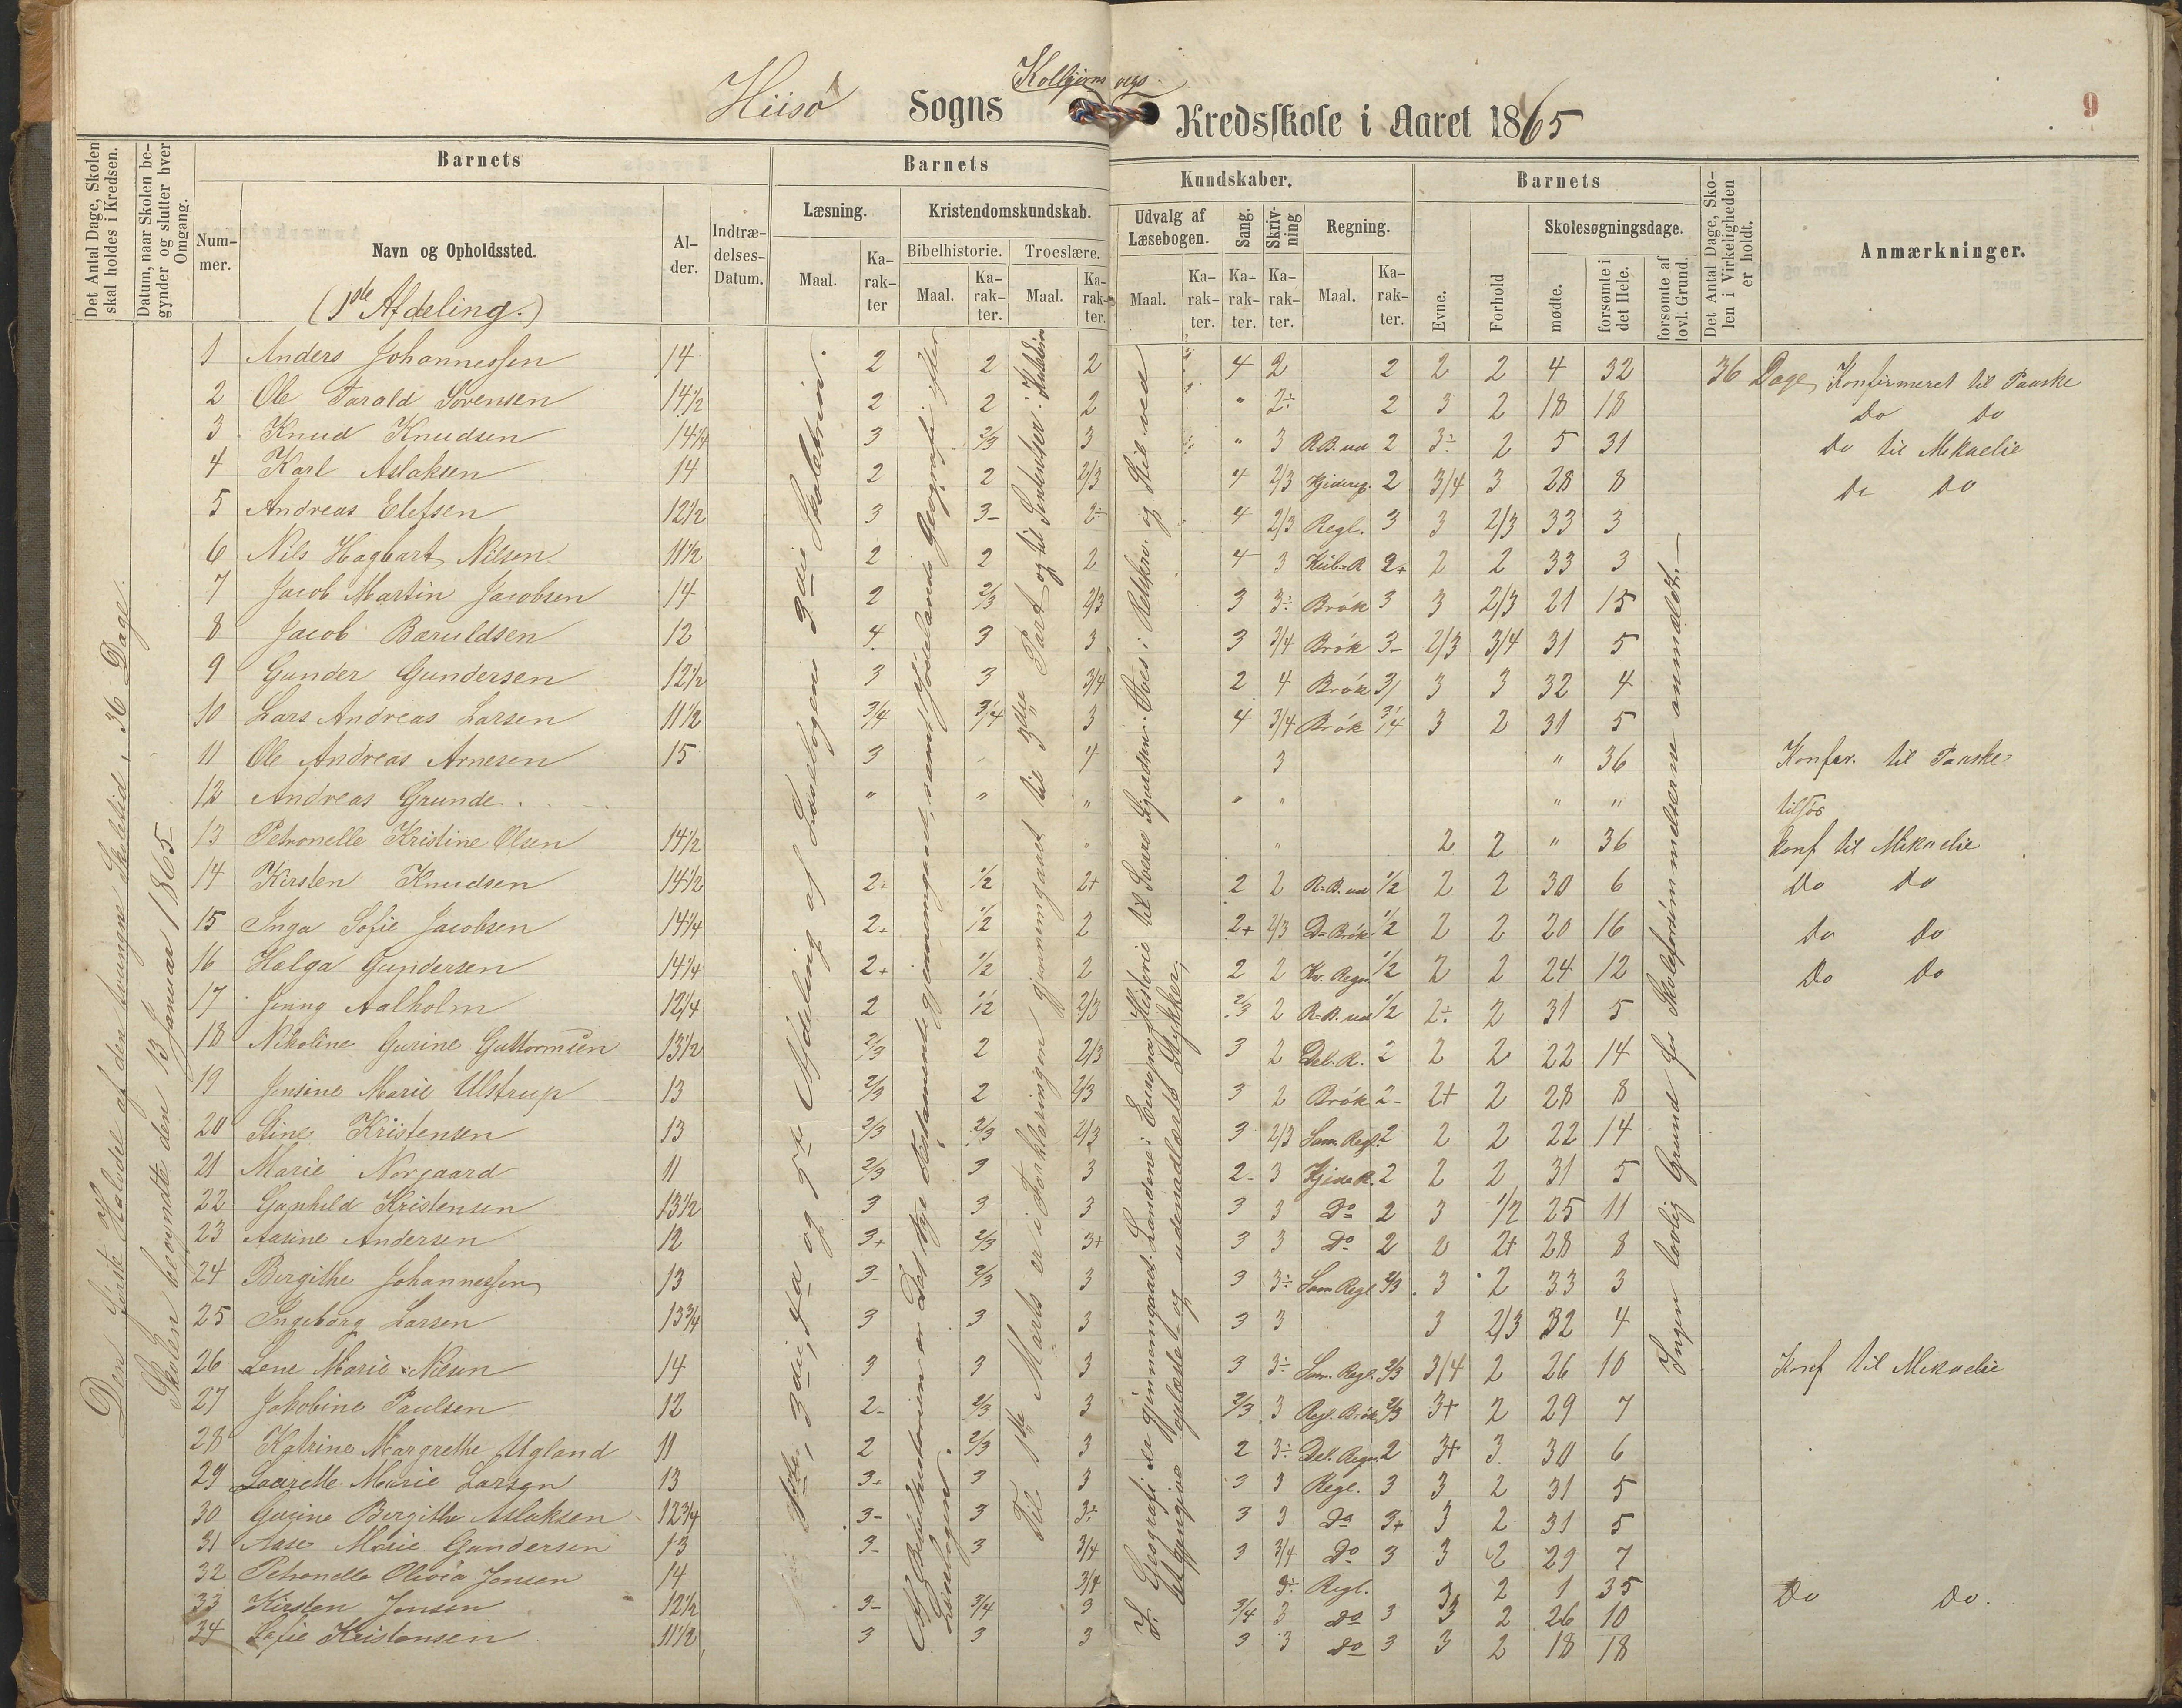 Hiisø Sogns Kolbjørnsvegs Kredsskole i Aaret 1865
9
Det Antal Dage, Skolen skal holdes i Kredsen.
Datum, naar Skolen begynder og slutter hver Omgang.
Barnets
Nummer.
Navn og Opholdssted.
(1ste Afdeling.)
Alder.
Indtrædelses-Datum.
Barnets Kundskaber.
Læsning.
Maal.
Karakter
Kristendomskundskab.
Bibelhistorie.
Maal.
Karakter.
Troeslære.
Maal.
Karakter.
Udvalg af Læsebogen.
Maal.
Karakter.
Sang.
Karakter.
Skrivning
Karakter.
Regning.
Maal.
Karakter.
Barnets
Evne.
Forhold
Skolesøgningsdage.
mødte.
forsømte i det Hele.
forsømte af lovl. Grund.
Det Antal Dage, Skolen i Virkeligheden er holdt.
Anmærkninger.
Den første Halvdel af den tvungne Skoletid, 36 Dage.
Skolen begyndte den 13 Januar 1865
3die og 4de og 5te Afdeling af Læsebogen 3die Skoletrin.
Til 1ste Marts er i Forklaringen gjennemgaaet til 3die Part og til Sententser
Ingen lovlig Grund for Skoleforsømmelserne anmeldt.
1 Anders Johannessen 14 2 2 2 4 2 2 2 2 4 32 36 Dage Konfirmeret til Paaske
2 Ole Tarald Sørensen 14½ 2 2 2 " 2÷ 2 3 2 18 18 Do Do
3 Knud Knudsen 14¼ 3 2/3 3 " 3 R.B. ud 2 3÷ 2 5 31 Do til Mikaelie
4 Karl Aslaksen 14 2 2 2/3 4 2/3 Kjædereg. 2 3/4 3 28 8 Do Do
5 Andreas Elefsen 12½ 3 3- 2÷ 4 2/3 Regl. 3 3 2/3 33 3
6 Nils Hagbart Nilsen 11½ 2 2 2 4 3 Kub-R 2+ 2 2 33 3
7 Jacob Martin Jacobsen 14 2 2/3 2/3 3 3÷ Brøk 3 3 2/3 21 15
8 Jacob Bæruldsen 12 4 3 3 3 3/4 Brøk 3- 2/3 3/4 31 5
9 Gunder Gundersen 12½ 3 3 3/4 2 4 Brøk 3/ 3 3 32 4
10 Lars Andreas Larsen 11½ 3/4 3/4 3 4 3/4 Brøk 3/4 3 2 31 5
11 Ole Andreas Arnesen 15 3 4 3 " 36 Konfir. til Paaske
12 Andreas Grunde " " " " " " " tilsøs
13 Petronelle Kristine Olsen 14½ " " 2 2 " 36 Konf til Mikaelie
14 Kirsten Knudsen 14½ 2+ ½ 2+ 2 2 R.B. ud ½ 2 2 30 6 Do Do
15 Inga Sofie Jacobsen 14¼ 2+ ½ 2 2+ 2/3 D-Brøk ½ 2 2 20 16 Do Do
16 Helga Gundersen 14¼ 2+ ½ 2 2 2 Kv. Regn. ½ 2 2 24 12 Do Do
17 Jenny Aalholm 12¼ 2 ½ 2/3 2/3 2 R-B. ud ½ 2÷ 2 31 5
18 Nikoline Gurine Guttormsen 13½ 2/3 2 2/3 3 2 Del. R. 2 2 2 22 14
19 Jensine Marie Ulstrup 13 2/3 2 2/3 3 2 Brøk 2- 2+ 2 28 8
20 Stine Kristensen 13 2/3 2/3 2/3 3 2/3 Sam. Regl. 2 2 2 22 14
21 Marie Norgaard 11 2/3 3 3 2- 3 Kjede R. 2 2 2 31 5
22 Gunhild Kristensen 13½ 3 3 3 3 3 Do 2 3 ½ 25 11
23 Aasine Andersen 12 3+ 2/3 3+ 3 3 Do 2 2 2+ 28 8
24 Birgithe Johannessen 13 3- 2/3 3 3 3÷ Sam Regl 2/3 3 2 33 3
25 Ingeborg Larsen 13¾ 3 3 3 3 3 3 2/3 32 4
26 Lene Marie Nilsen 14 3 3 3 3 3÷ Sam. Regl. 2/3 3/4 2 26 10 Konf til Mikaelie
27 Jakobine Paulsen 12 2- 2/3 3 2/3 3 Regl. Brøk 2/3 3+ 2 29 7
28 Katrine Margrethe Ugland 11 2 2/3 3 2 3÷ Del. Regn. 2 3+ 3 30 6
29 Laurette Marie Larsen 13 3+ 3 3 3 3 Regl. 3 3 2 31 5
30 Gurine Birgithe Aslaksen 12¾ 3- 3 3÷ 3 3 Do 3+ 3 2 31 5
31 Aase Marie Gundersen 13 3- 3 3/4 3 3/4 Do 3 3 2 29 7
32 Petronella Olivia Jensen 14 3/4 3÷ Regl. 3 2 1 35 Do Do.
33 Kirsten Jensen 12½ 3- 3/4 3 3/4 3 Do 3 3 2 26 10
34 Sofie Kristensen 11½ 3 3 3 3 3 Do 3 3 2 18 18